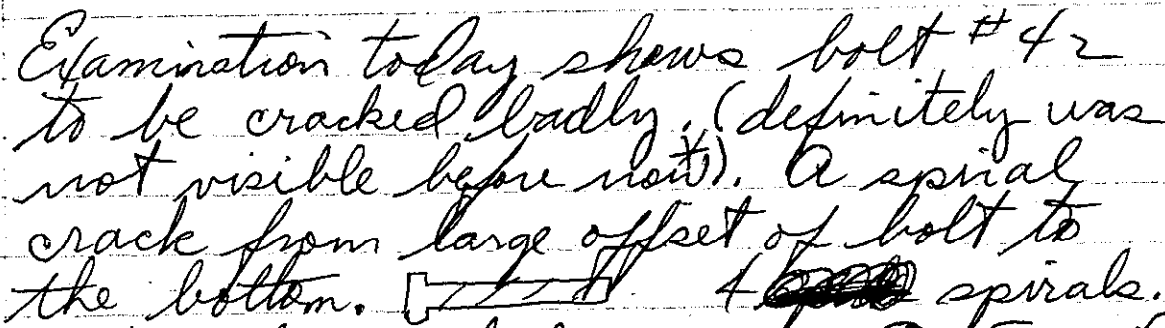 Examination today shows bolt #42
to be cracked badly. (definitely was
not visible before now*). A spiral
crack from large offset of bolt to
the bottom. 4 spirals.